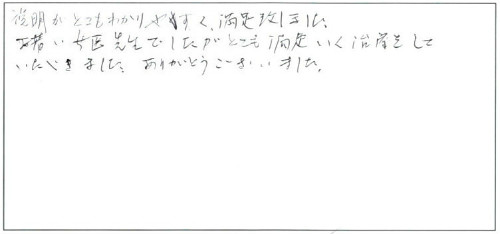 説明がとてもわかりやすく、満足致しました。
お若い女医先生でしたがとても満足いく治療をして
いただきました。ありがとうございました。